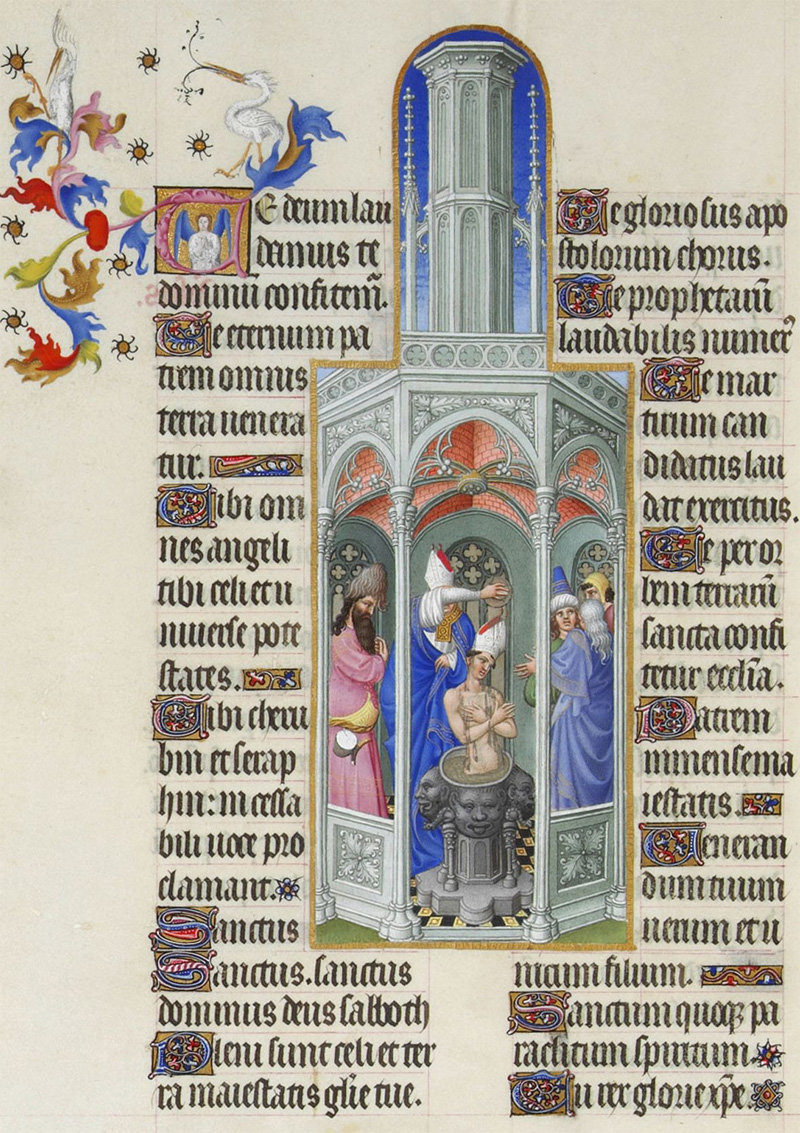 Te deum lau
damus te
dominū confitem̄.
Te eternum pa
trem omnis
terra uenera
tur.
Tibi om
nes angeli
tibi celi et u
niuerse pote
states.
Tibi cheru
bin et serap
hin: incessa
bili uoce pro
clamant.
Sanctus
Sanctus. sanctus
dominus deus sabboth
Pleni sunt celi et ter
ra maiestatis gl̄ie tue.
Te gloriosus apo
stolorum chorus.
Te prophetarū
laudabilis numer᾿
Te mar
tirum can
didatus lau
dat exercitus.
Te per or
bem terrarū
sancta confi
tetur eccl̄ia.
Patrem
immense ma
iestatis.
Ueneran
dum tuum
uerum et u
nicum filium.
Sanctum quoqꝫ pa
raclitum spiritum.
Tu rex glorie xp̄e.